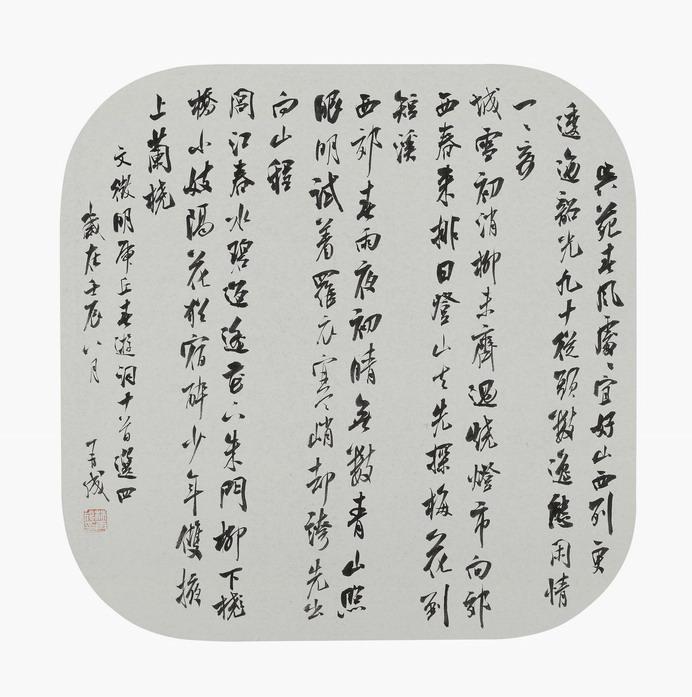 吳苑春風處〻宜好山西列更
逶迤韶光九十從頭數逸態閑情
一〻奇
城雪初消柳未齊過燒燈市向郊
西春來排日登山去先探梅花到
短溪
西郊春雨夜初晴無數青山照
眼明試着羅衣寒峭却誇先出
向山程
閶江春水碧花下朱門柳下橈
橋小妓隔花猶宿醉少年雙掖
上蘭橈
文徵明虎丘春遊詞十首選四
歲在壬辰八月